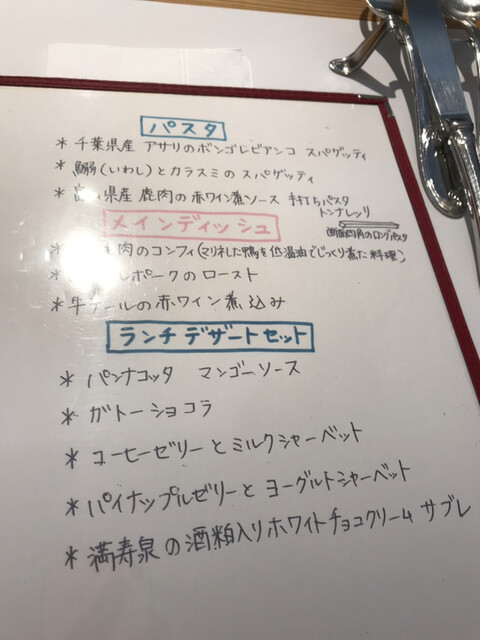 パスタ
* 千葉県産 アサリのボンゴレビアンコ スパゲッティ
* 鰯(いわし)とカラスミの スパゲッティ
* 県産 鹿肉の赤ワイン煮ソース 手打ちパスタ
トンナレッリ
断面四角のロングパスタ
メインディッシュ
* 肉のコンフィ(マリネした鴨を低温油でじっくり煮た料理)
* ルポークのロースト
* 牛テールの赤ワイン煮込み
ランチデザートセット
* パンナコッタ マンゴーソース
* ガトーショコラ
* コーヒーゼリーとミルクシャーベット
* パイナップルゼリーと ヨーグルトシャーベット
* 満寿泉の酒粕入りホワイトチョコクリームサブレ